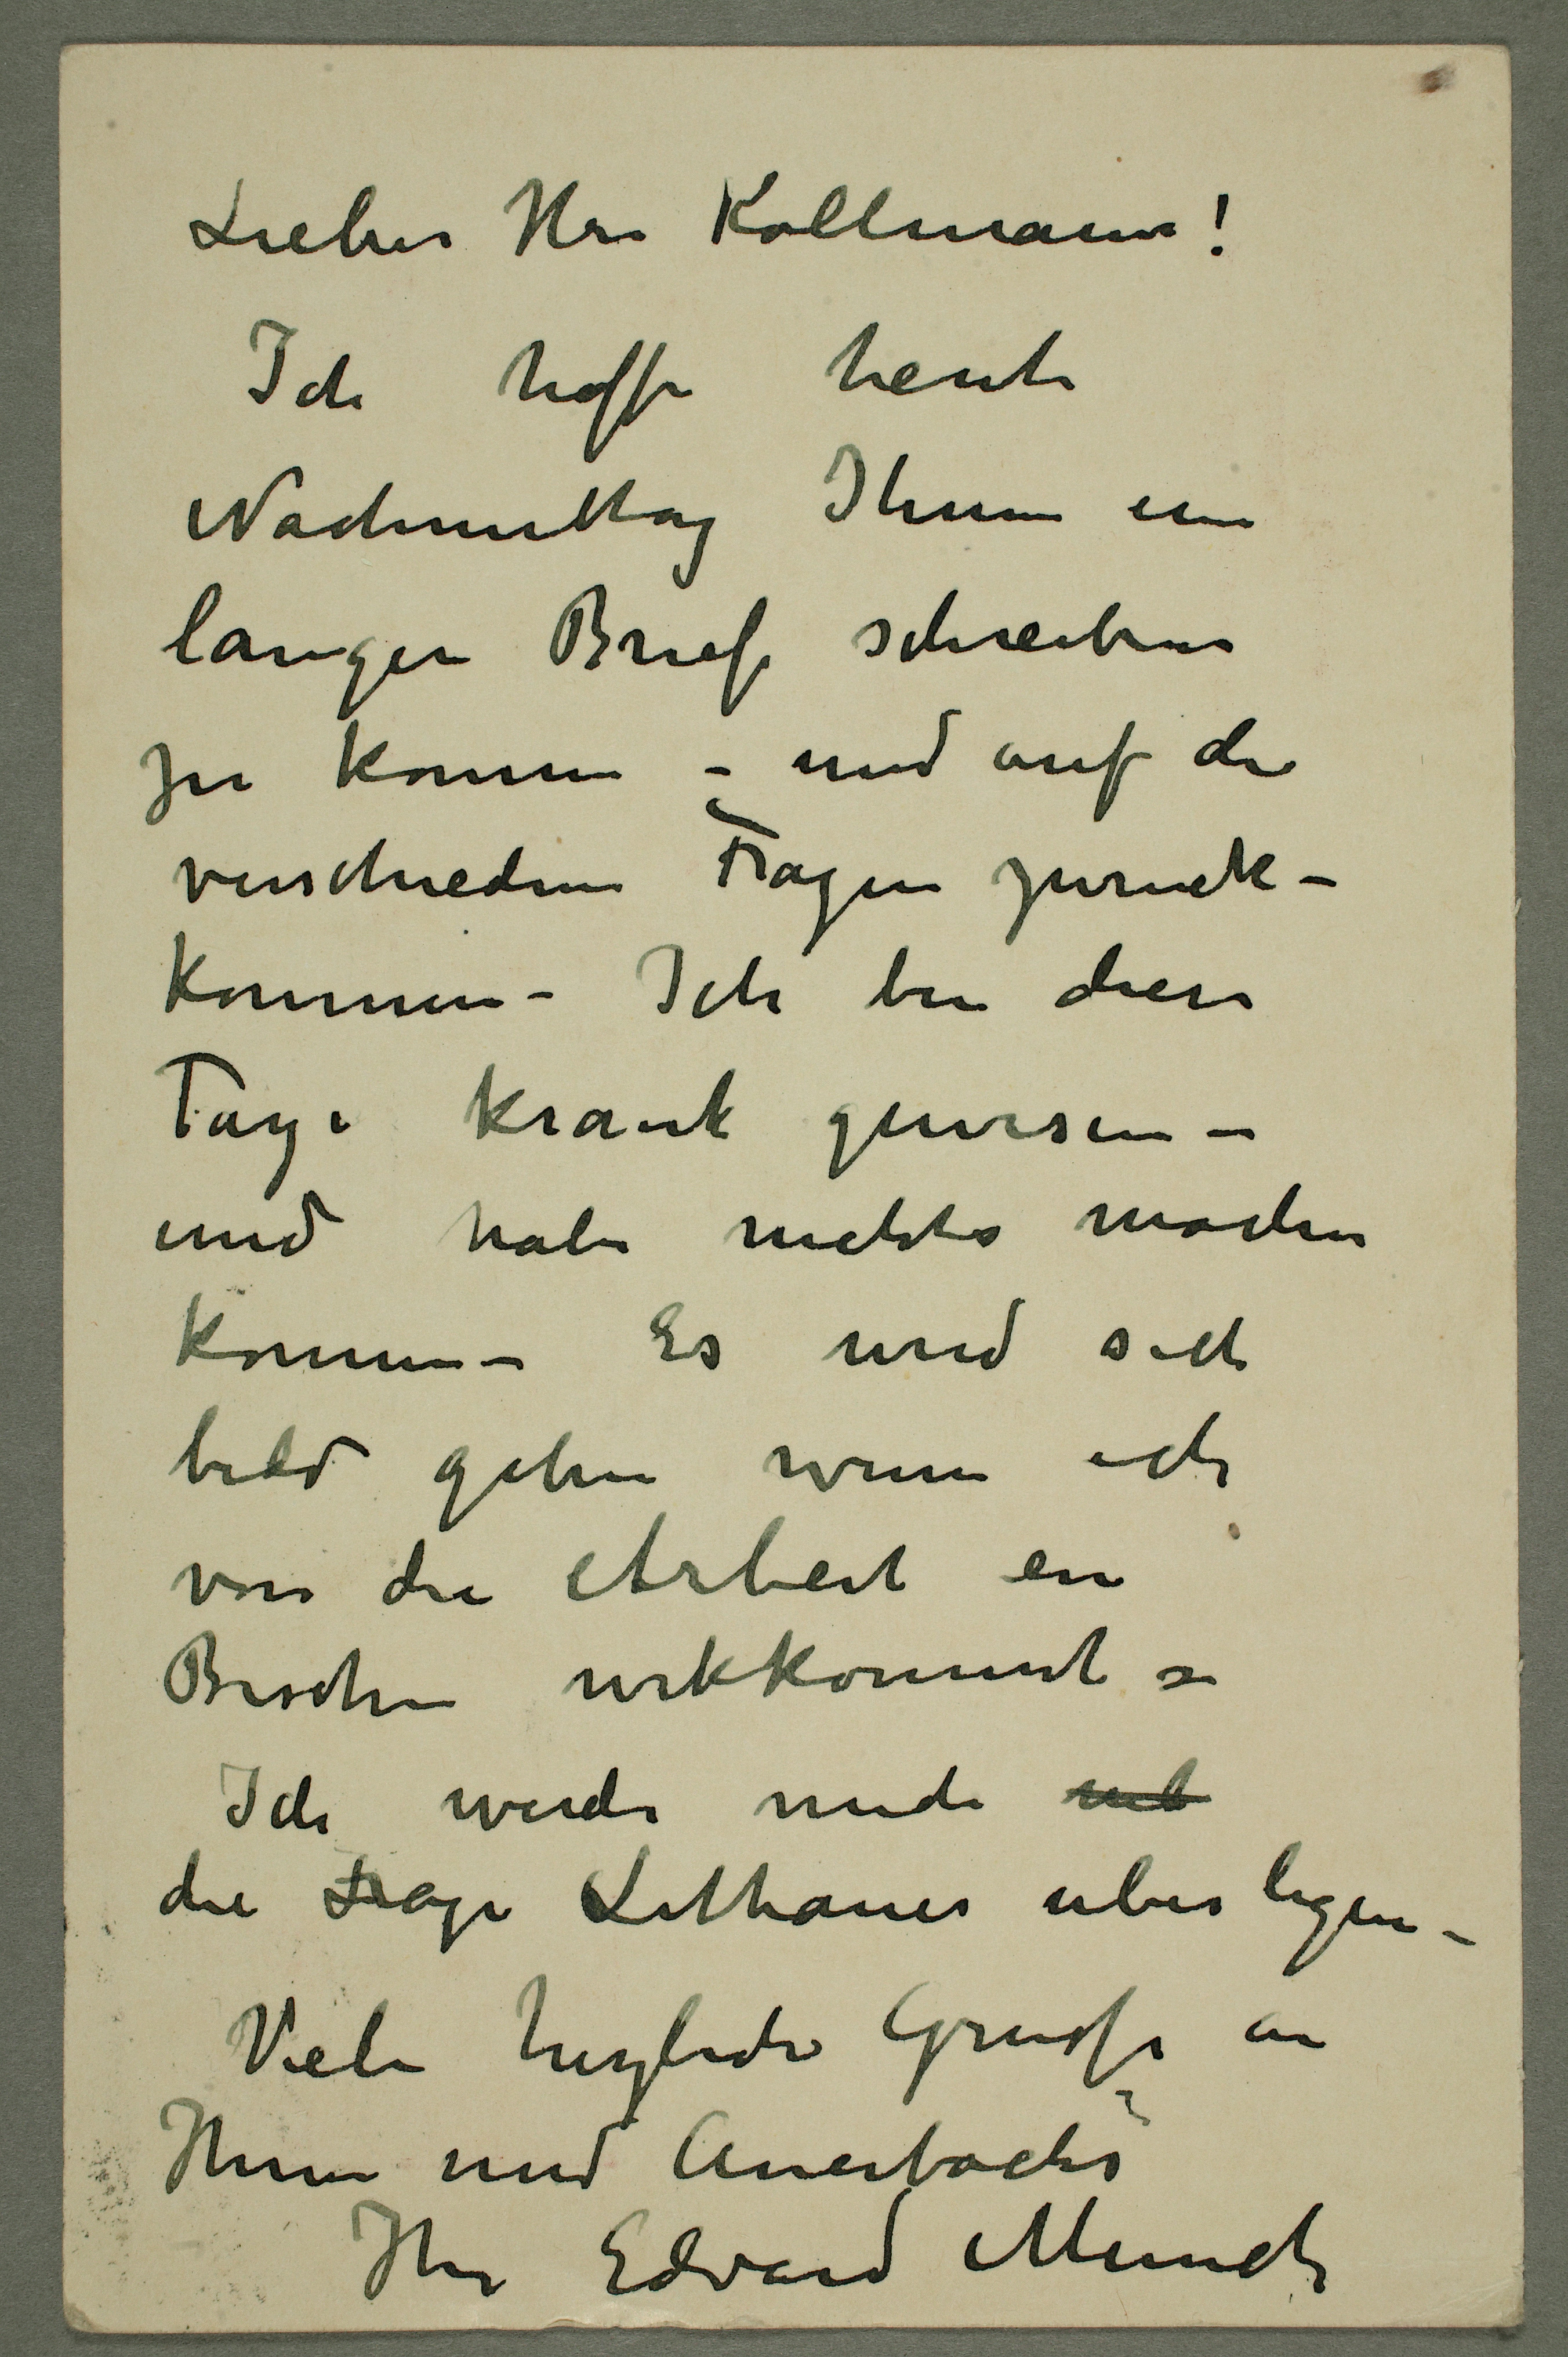 Lieber Herr Kollmann!
Ich hoffe heute
Nachmittag Ihnen ein
langen Brief schreiben
zu konnen – und auf die
verschiedene Fragen zurück-
kommen – Ich bin diese
Tage krank gewesen –
und habe nichts machen
konnen – Es wird sich
bald geben wenn ich
von die Arbeit ein
Bischen wekkommt –
Ich werde mich
die Frage Litthauer uberlegen –
Viele herzliche Grusse an
Ihnen und Auerbachs
Ihr Edvard Munch